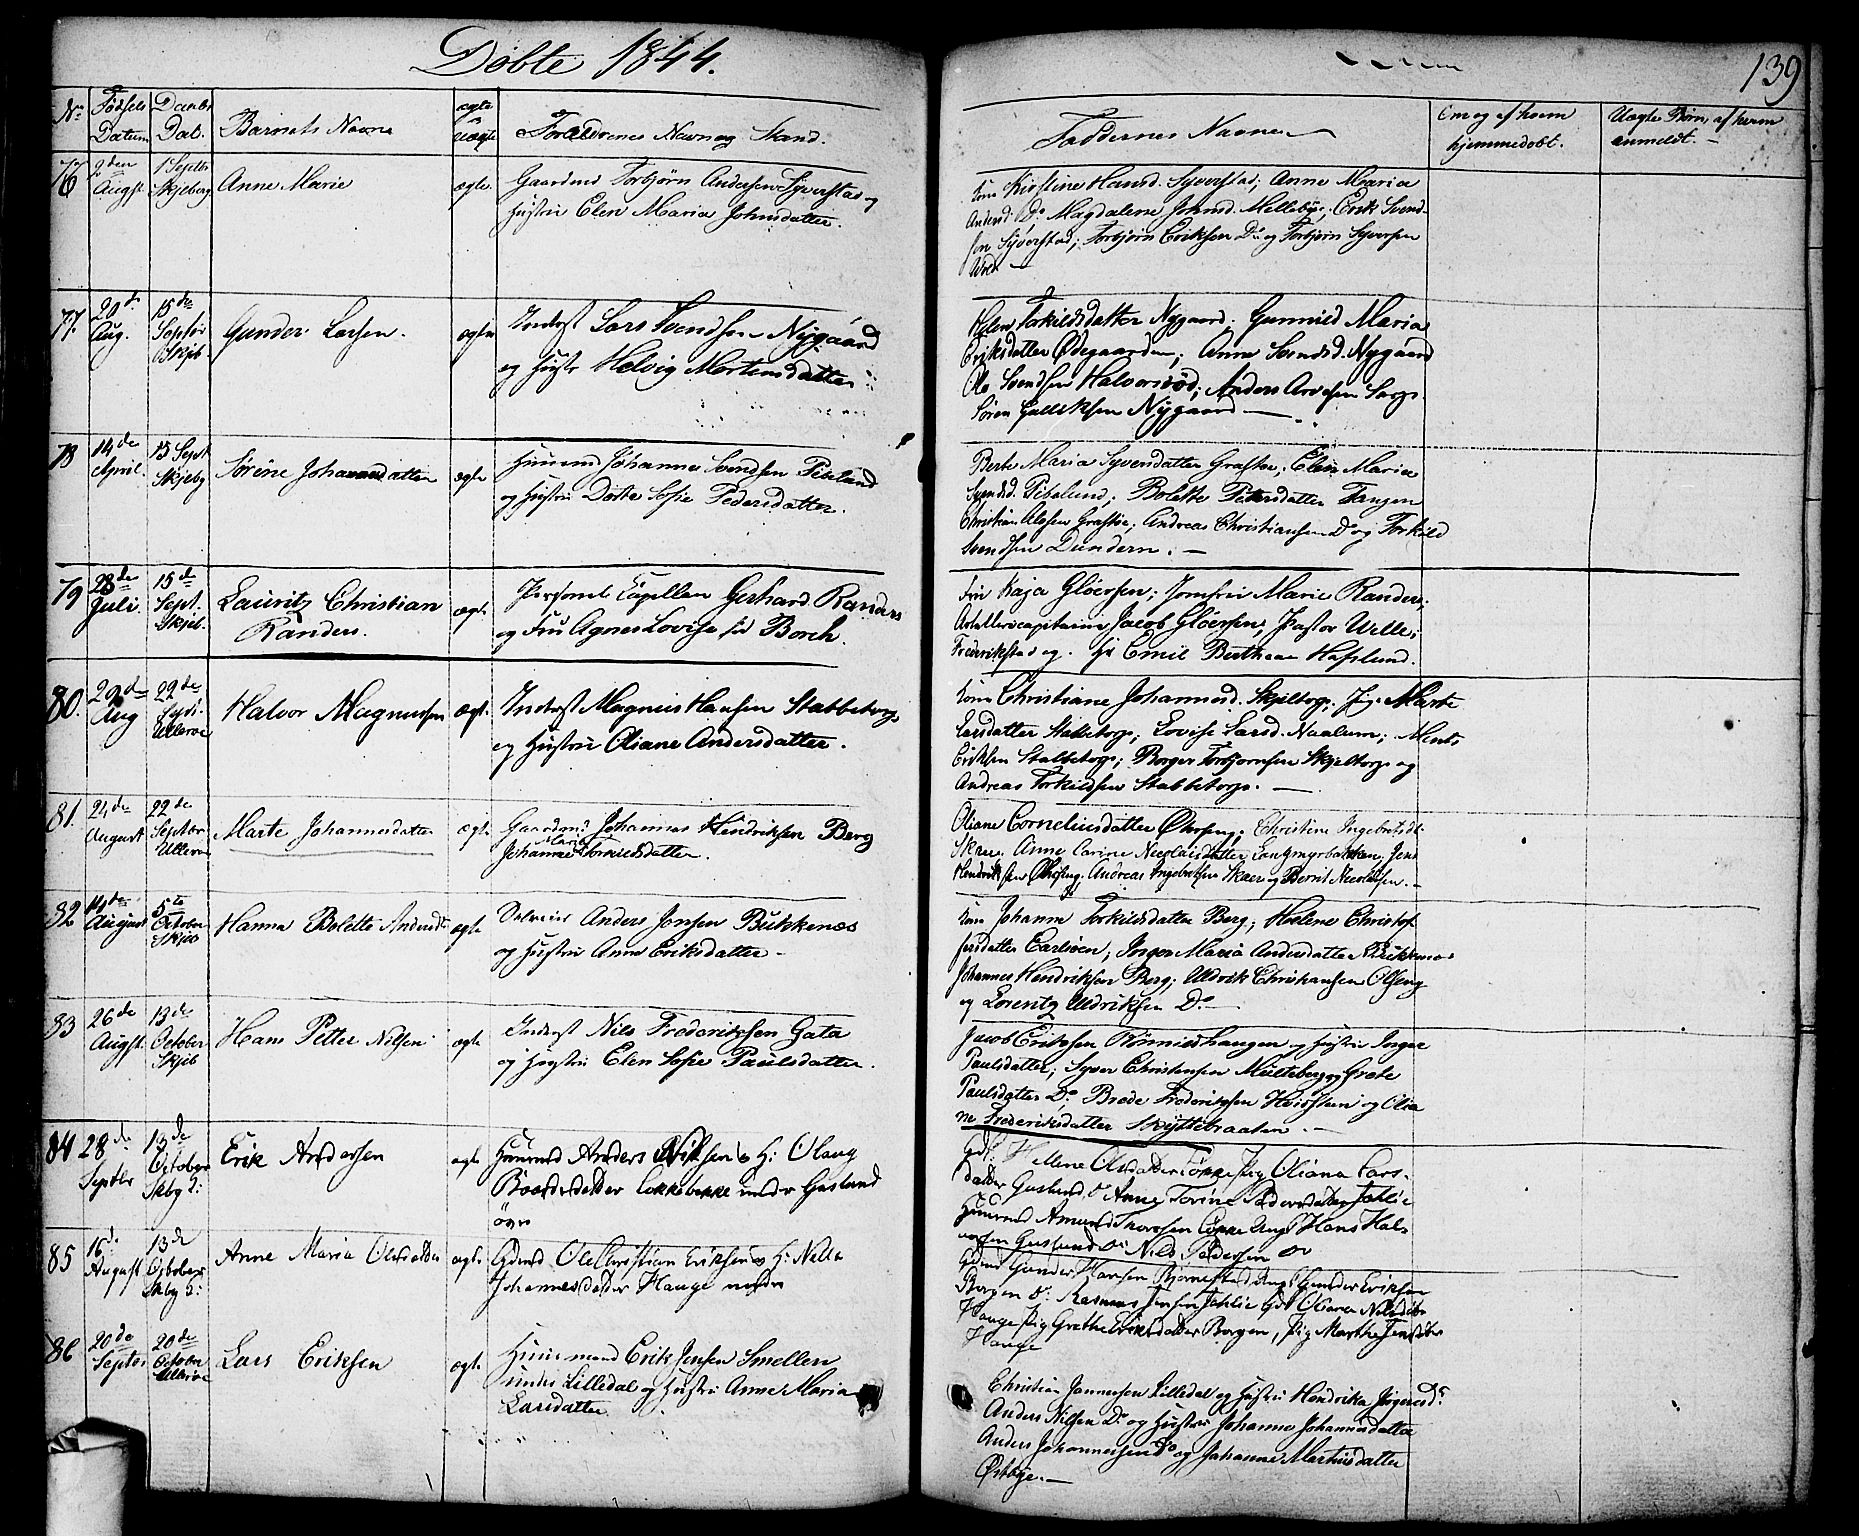 Døbte 1844.
139
No Fødsels Datum Daabs Dat. Barnets Navne ægte uægte Forældrenes Navn og Stand.
Faddernes Navne
Om og af hvem hjemmedøbt.
Uægte Børn, af hvem anmeldt.
76 2den Augst 1 Septbr Skjeberg Anne Marie ægte. Gaardmd Torbjørn Andersen Syverstad og
Hustru Elen Maria Johnsdatter.
Kone Kirstine Hansd. Syverstad; Anne Maria
Andersd. Do Magdalene Johnsd. Mellebye; Erik Svend-
sen Syverstad; Torbjørn Eriksen Do og Torbjørn Syversen
77. 20de Aug. 15de Septbr Skjeb. Gunder Larsen. ægte Inderst Lars Svendsen Nygaard
og Hustr Helvig Mortensdatter
Helene Torkildsdatter Nygaard; Gunnild Maria
Eriksdatter Ødegaarden; Anne Svendsd. Nygaard
Ole Svendsen Halvorsrød; Anders Arvesen Sarps
Søren Gulliksen Nygaard
78 14de April. 15 Sept Skjebg Sørine Johannesdatter ægte Huusmd Johannes Svendsen
og Hustru Dorte Sofie Pedersdatter.
Berte Maria Syversdatter Grastøe; Elen Maria
Svendsd. ; Bolette Petersdatter Tangen
Christian Olsen Grastøe; Andreas Christiansen Do og Torkild
Svendsen Dundern.
79 28de Juli. 15de Sept. Skjeb. Lauritz Christian
Randers. ægte Personel Capellan Gerhard Randers
og Fru Agnes Lovise fød Borch.
Fru Kaja Gløersen; Jomfru Marie Randers;
Artillericapitain Jacob Gløersen; Pastor Wille;
Frederikstad og Hr Emil Berthau Hafslund.
80. 29de Aug 22de Septbr Ullerøe Halvor Magnussen ægte. Inderst Magnus Hansen Stabbetorp
og Hustru Oliane Andersdatter.
Kone Christiane Johannesd. Skjeltorp; Pig. Marte
Larsdatter Stabbetorp; Lovise Larsd. Naalum; Ments
Eriksen Stabbetorp; Borger Torbjørnsen Skjeltorp og
Andreas Torkildsen Stabbetorp.
81. 24de August 22 Septbr Ullerøe Marte Johannesdatter ægte Gaardmd Johannes Hendriksen Berg
Johanne Maria Torkildsdatter.
Oliane Corneliusdatter ; Christine Ingebretsdt
Skaar; Anne Carine Nicolaisdatter Langmyrbakken; Jens
Hendriksen ; Andreas Ingebretsen Skaar og Bernt Nicolaisen.
82 14de August 5te October Skjeb Hanna Bolette Andersdt ægte Selveier Anders Jensen Bukkenæs
og Hustru Anne Eriksdatter
Kone Johanne Torkildsdatter Berg; Helene Christof
fersdatter Carlsøen; Inger Maria Andersdatter Bukkenæs
Johannes Hendriksen Berg; Uldrik Christiansen Olseng
og Lorentz Uldriksen Do
83 26de Augst. 13de October Skjeb Hans Petter Nilsen ægte Inderst Nils Frederiksen Gata
og Hustru Elen Sofie Paulsdatter.
Jacob Eriksen og Hustru Inger
Paulsdatter; Syver Christensen Multeberg og Grete
Paulsdatter Do; Brede Frederiksen og Olia
ne Frederiksdatter Skyttebraaten.
84 28de Septbr 13de October Skbg K: Erik Andersen ægte Huusmd Anders Nilsen & H: Olaug
Baardsdatter Løkkebakke under Guslund
øvre
Gdk: Hellene Olsdatter Løkke, Pig Oliana Lars-
datter Guslund, do Anne Torine Pedersdatter Jahlie
Huusmd Amund Thoresen Løkke, Ung Hans Hal-
vorsen Guslund Do Nils Pedersen do
85 16de August 13de October Skbg K: Anne Maria Olsdatter ægte Gdmd Ole Christian Eriksen & H: Nella
Johannesdatter Hauge nedre
Gdmd Gunder Hansen Bjørnestad, Ung Gunder Eriksen
Borgen Do: Rasmus Jensen Jahlie Gdk Oliana Nilsdtr
Hauge, Pig Grethe Eriksdatter Borgen, Pig Marthe Jensdtr
Hauge
86 20de Septbr 20de October Ullerøe Lars Eriksen ægte Huusmand Erik Jensen Smellen
under Lilledal og Hustru Anne Maria
Larsdatter.
Christian Jannessen Lilledal og Hustru Hendrika Jørgensd.
Anders Nilsen Do og Hustru Johanne Johannesdatter
Anders Johannessen Do og Johanne Martinsdatter
Østbye.